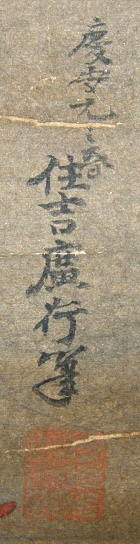 慶安元之春
住吉廣行筆